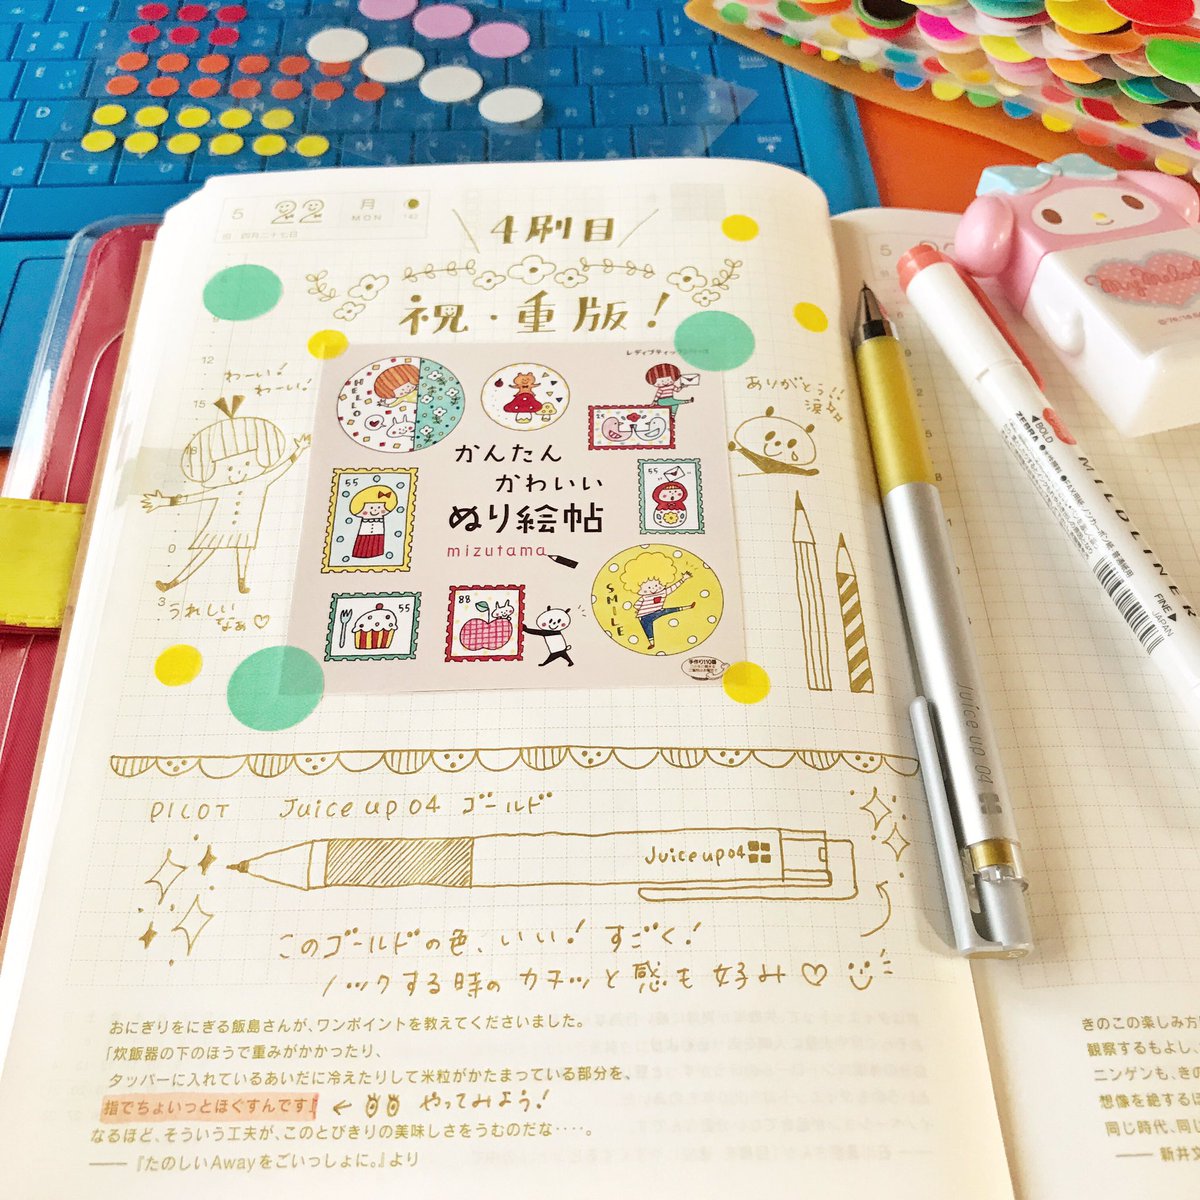 5 22 月
MON
142
旧 四月二十七日
4刷目
祝・重版!
12
15
わーい!
わーい!
うれしい
なぁ♡
ありがとう!!
涙
HELLO
かんたん
かわいい
ぬり絵帖
mizutama
55
25
55
55
88
SMILE
手作り110番
PILOT Juice up 04 ゴールド
Juice up 04
このゴールドの色、いい! すごく!
ノックする時のカチッと感も好み♡
おにぎりをにぎる飯島さんが、ワンポイントを教えてくださいました。
「炊飯器の下のほうで重みがかかったり、
タッパーに入れているあいだに冷えたりして米粒がかたまっている部分を、
指でちょいっとほぐすんです」 ← やってみよう!
なるほど、そういう工夫が、このとびきりの美味しさをうむのだな‥‥。
──『たのしいAwayをごいっしょに。』より
Juice up 04
BOLD
ZEBRA
MILDLINER
FINE
JAPAN
My Melody
きのこの楽しみ方
観察するもよし、
ニンゲンも、きの
想像を絶するほ
同じ時代、同じ
── 新井文